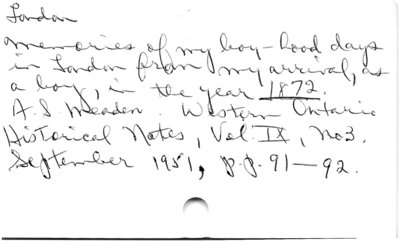 London
Memories of my boy-hood days
in London from my arrival, as
a boy, in the year 1872.
A. S. Meaden. Western Ontario
Historical Notes, Vol. IX, No3.
September 1951, p.p. 91—92.